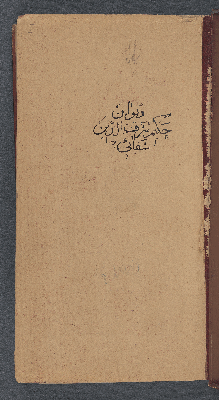 دیوان
حکیم شرف الدین
شفائی